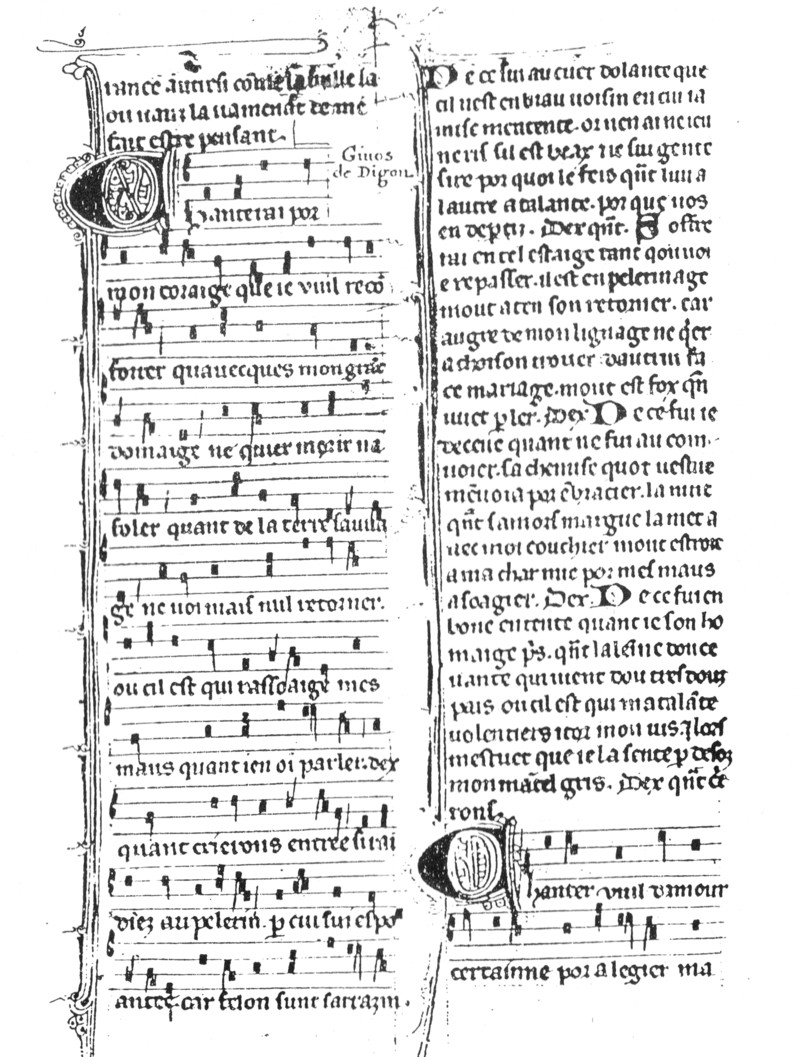 rance autresi come la bulle la
ou vaur la vamenat de me
fait estre pensant.
Guios
de Digon
Chanterai por
mon coraige que ie vuil reco
forter quauecques mon grāt
domaige ne quier morir na
foler quant de la terre sauua
ge ne uoi mais nul retorner.
ou cil est qui rassoaige mes
maus quant ien oi parler. dex
quant crieront entree si rai
diez au pelerin. p cui sui espo
antee car felon sunt sarrazin.
De ce sui au cuer dolante que
cil nest en biau uoisin en cui ia
mise mentente. or nen ai ne ieu
ne ris sil est beax ne sui gente
sire por quoi le feis qūt luns a
lautre atalante. por que uos
en departi. Dex qūt. Soffre
rai en cel estaige tant qou uoi
e repasser. il est en pelerinage
mout aten son retorner. car
augre de mon lignage ne qer
achoison trouer dautrui fa
ce mariage. mout est fox qn
uuet pler. Dex De ce fui ie
deceue quant ne fui au con-
uoier. sa chemise quot uestue
menuoia por ēbracier. la nuit
qūt samors margue la met a
uec moi couchier mout estroit
a ma char nue por mes maus
asoagier. Dex. De ce sui en
bone entente quant ie son ho
maige pris. qūt laleine douce
uante qui uient dou tres douz
pais ou cil est qui matalāte
uolentiers i tor mon uis. lors
mestuet que ie la sente p desoz
mon mātel gris. Dex qūt cri
ront.
Chanter vuil damour
certainne por alegier ma